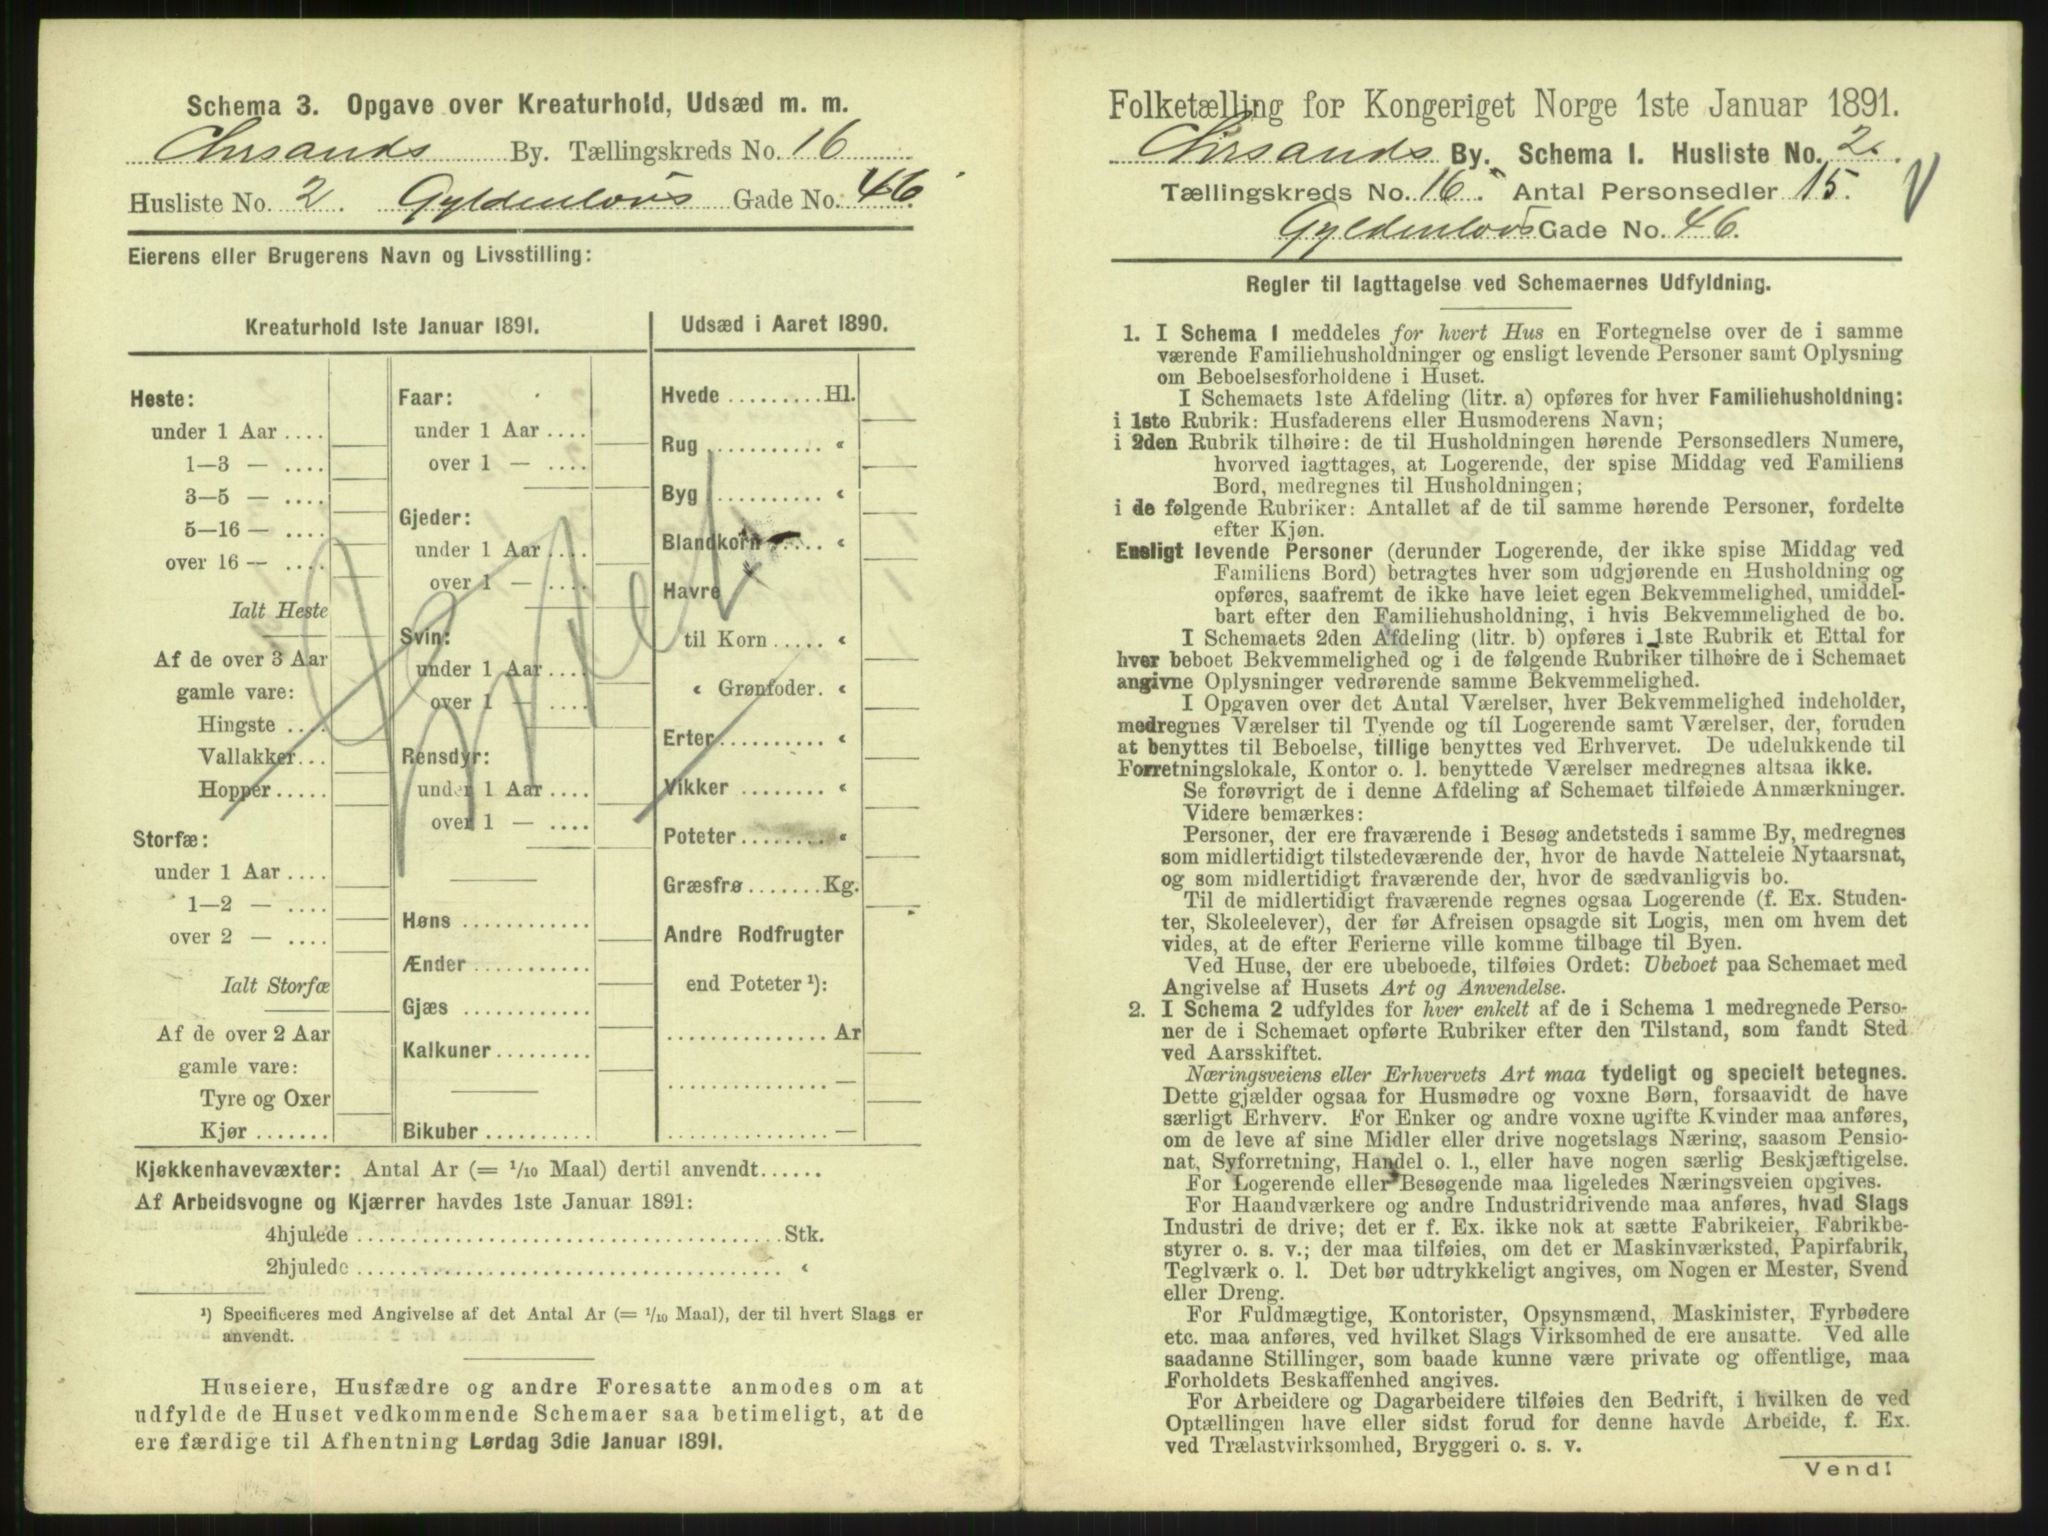 Schema 3. Opgave over Kreaturhold, Udsæd m. m.
Chrsands By. Tællingskreds No. 16
Husliste No. 2 Gyldenløvs Gade No. 46.
Eierens eller Brugerens Navn og Livsstilling:
Kreaturhold 1ste Januar 1891.
Heste:
under 1 Aar ....
1—3 — ....
3—5 — ....
5—16 — ....
over 16 — ....
Ialt Heste
Af de over 3 Aar
gamle vare:
Hingste ....
Vallakker...
Hopper.....
Storfæ:
under 1 Aar ....
1—2 — ....
over 2 — ....
Ialt Storfæ
Af de over 2 Aar
gamle vare:
Tyre og Oxer
Kjør .......
Faar:
under 1 Aar ....
over 1 — ....
Gjeder:
under 1 Aar ....
over 1 — ....
Svin:
under 1 Aar ....
over 1 — ....
Rensdyr:
under 1 Aar ....
over 1 — ....
Høns ............
Ænder ...........
Gjæs ............
Kalkuner.........
Bikuber..........
Udsæd i Aaret 1890.
Hvede .........Hl.
Rug .......... «
Byg .......... «
Blandkorn ..... «
Havre
til Korn ..... «
« Grønfoder. «
Erter.......... «
Vikker ........ «
Poteter ........ «
Græsfrø .......Kg.
Andre Rodfrugter
end Poteter ¹):
............... Ar
............... —
............... —
Kjøkkenhavevæxter: Antal Ar (= 1/10 Maal) dertil anvendt......
Af Arbeidsvogne og Kjærrer havdes 1ste Januar 1891:
4hjulede ....................................... Stk.
2hjulede ....................................... «
¹) Specificeres med Angivelse af det Antal Ar (= 1/10 Maal), der til hvert Slags er
anvendt.
Huseiere, Husfædre og andre Foresatte anmodes om at
udfylde de Huset vedkommende Schemaer saa betimeligt, at de
ere færdige til Afhentning Lørdag 3die Januar 1891.
Folketælling for Kongeriget Norge 1ste Januar 1891.
Chrsands By. Schema I. Husliste No. 2.
Tællingskreds No. 16. Antal Personsedler 15.
Gyldenløvs Gade No. 46.
Regler til Iagttagelse ved Schemaernes Udfyldning.
1. I Schema 1 meddeles for hvert Hus en Fortegnelse over de i samme
værende Familiehusholdninger og ensligt levende Personer samt Oplysning
om Beboelsesforholdene i Huset.
I Schemaets 1ste Afdeling (litr. a) opføres for hver Familiehusholdning:
i 1ste Rubrik: Husfaderens eller Husmoderens Navn;
i 2den Rubrik tilhøire: de til Husholdningen hørende Personsedlers Numere,
hvorved iagttages, at Logerende, der spise Middag ved Familiens
Bord, medregnes til Husholdningen;
i de følgende Rubriker: Antallet af de til samme hørende Personer, fordelte
efter Kjøn.
Ensligt levende Personer (derunder Logerende, der ikke spise Middag ved
Familiens Bord) betragtes hver som udgjørende en Husholdning og
opføres, saafremt de ikke have leiet egen Bekvemmelighed, umiddel-
bart efter den Familiehusholdning, i hvis Bekvemmelighed de bo.
I Schemaets 2den Afdeling (litr. b) opføres i 1ste Rubrik et Ettal for
hver beboet Bekvemmelighed og i de følgende Rubriker tilhøire de i Schemaet
angivne Oplysninger vedrørende samme Bekvemmelighed.
I Opgaven over det Antal Værelser, hver Bekvemmelighed indeholder,
medregnes Værelser til Tyende og til Logerende samt Værelser, der, foruden
at benyttes til Beboelse, tillige benyttes ved Erhvervet. De udelukkende til
Forretningslokale, Kontor o. l. benyttede Værelser medregnes altsaa ikke.
Se forøvrigt de i denne Afdeling af Schemaet tilføiede Anmærkninger.
Videre bemærkes:
Personer, der ere fraværende i Besøg andetsteds i samme By, medregnes
som midlertidigt tilstedeværende der, hvor de havde Natteleie Nytaarsnat,
og som midlertidigt fraværende der, hvor de sædvanligvis bo.
Til de midlertidigt fraværende regnes ogsaa Logerende (f. Ex. Studen-
ter, Skoleelever), der før Afreisen opsagde sit Logis, men om hvem det
vides, at de efter Ferierne ville komme tilbage til Byen.
Ved Huse, der ere ubeboede, tilføies Ordet: Ubeboet paa Schemaet med
Angivelse af Husets Art og Anvendelse.
2. I Schema 2 udfyldes for hver enkelt af de i Schema 1 medregnede Perso-
ner de i Schemaet opførte Rubriker efter den Tilstand, som fandt Sted
ved Aarsskiftet.
Næringsveiens eller Erhvervets Art maa tydeligt og specielt betegnes.
Dette gjælder ogsaa for Husmødre og voxne Børn, forsaavidt de have
særligt Erhverv. For Enker og andre voxne ugifte Kvinder maa anføres,
om de leve af sine Midler eller drive nogetslags Næring, saasom Pensio-
nat, Syforretning, Handel o. l., eller have nogen særlig Beskjæftigelse.
For Logerende eller Besøgende maa ligeledes Næringsveien opgives.
For Haandværkere og andre Industridrivende maa anføres, hvad Slags
Industri de drive; det er f. Ex. ikke nok at sætte Fabrikeier, Fabrikbe-
styrer o. s. v.; der maa tilføies, om det er Maskinværksted, Papirfabrik,
Teglværk o. l. Det bør udtrykkeligt angives, om Nogen er Mester, Svend
eller Dreng.
For Fuldmægtige, Kontorister, Opsynsmænd, Maskinister, Fyrbødere
etc. maa anføres, ved hvilket Slags Virksomhed de ere ansatte. Ved alle
saadanne Stillinger, som baade kunne være private og offentlige, maa
Forholdets Beskaffenhed angives.
For Arbeidere og Dagarbeidere tilføies den Bedrift, i hvilken de ved
Optællingen have eller sidst forud for denne havde Arbeide, f. Ex.
ved Trælastvirksomhed, Bryggeri o. s. v.
Vend!